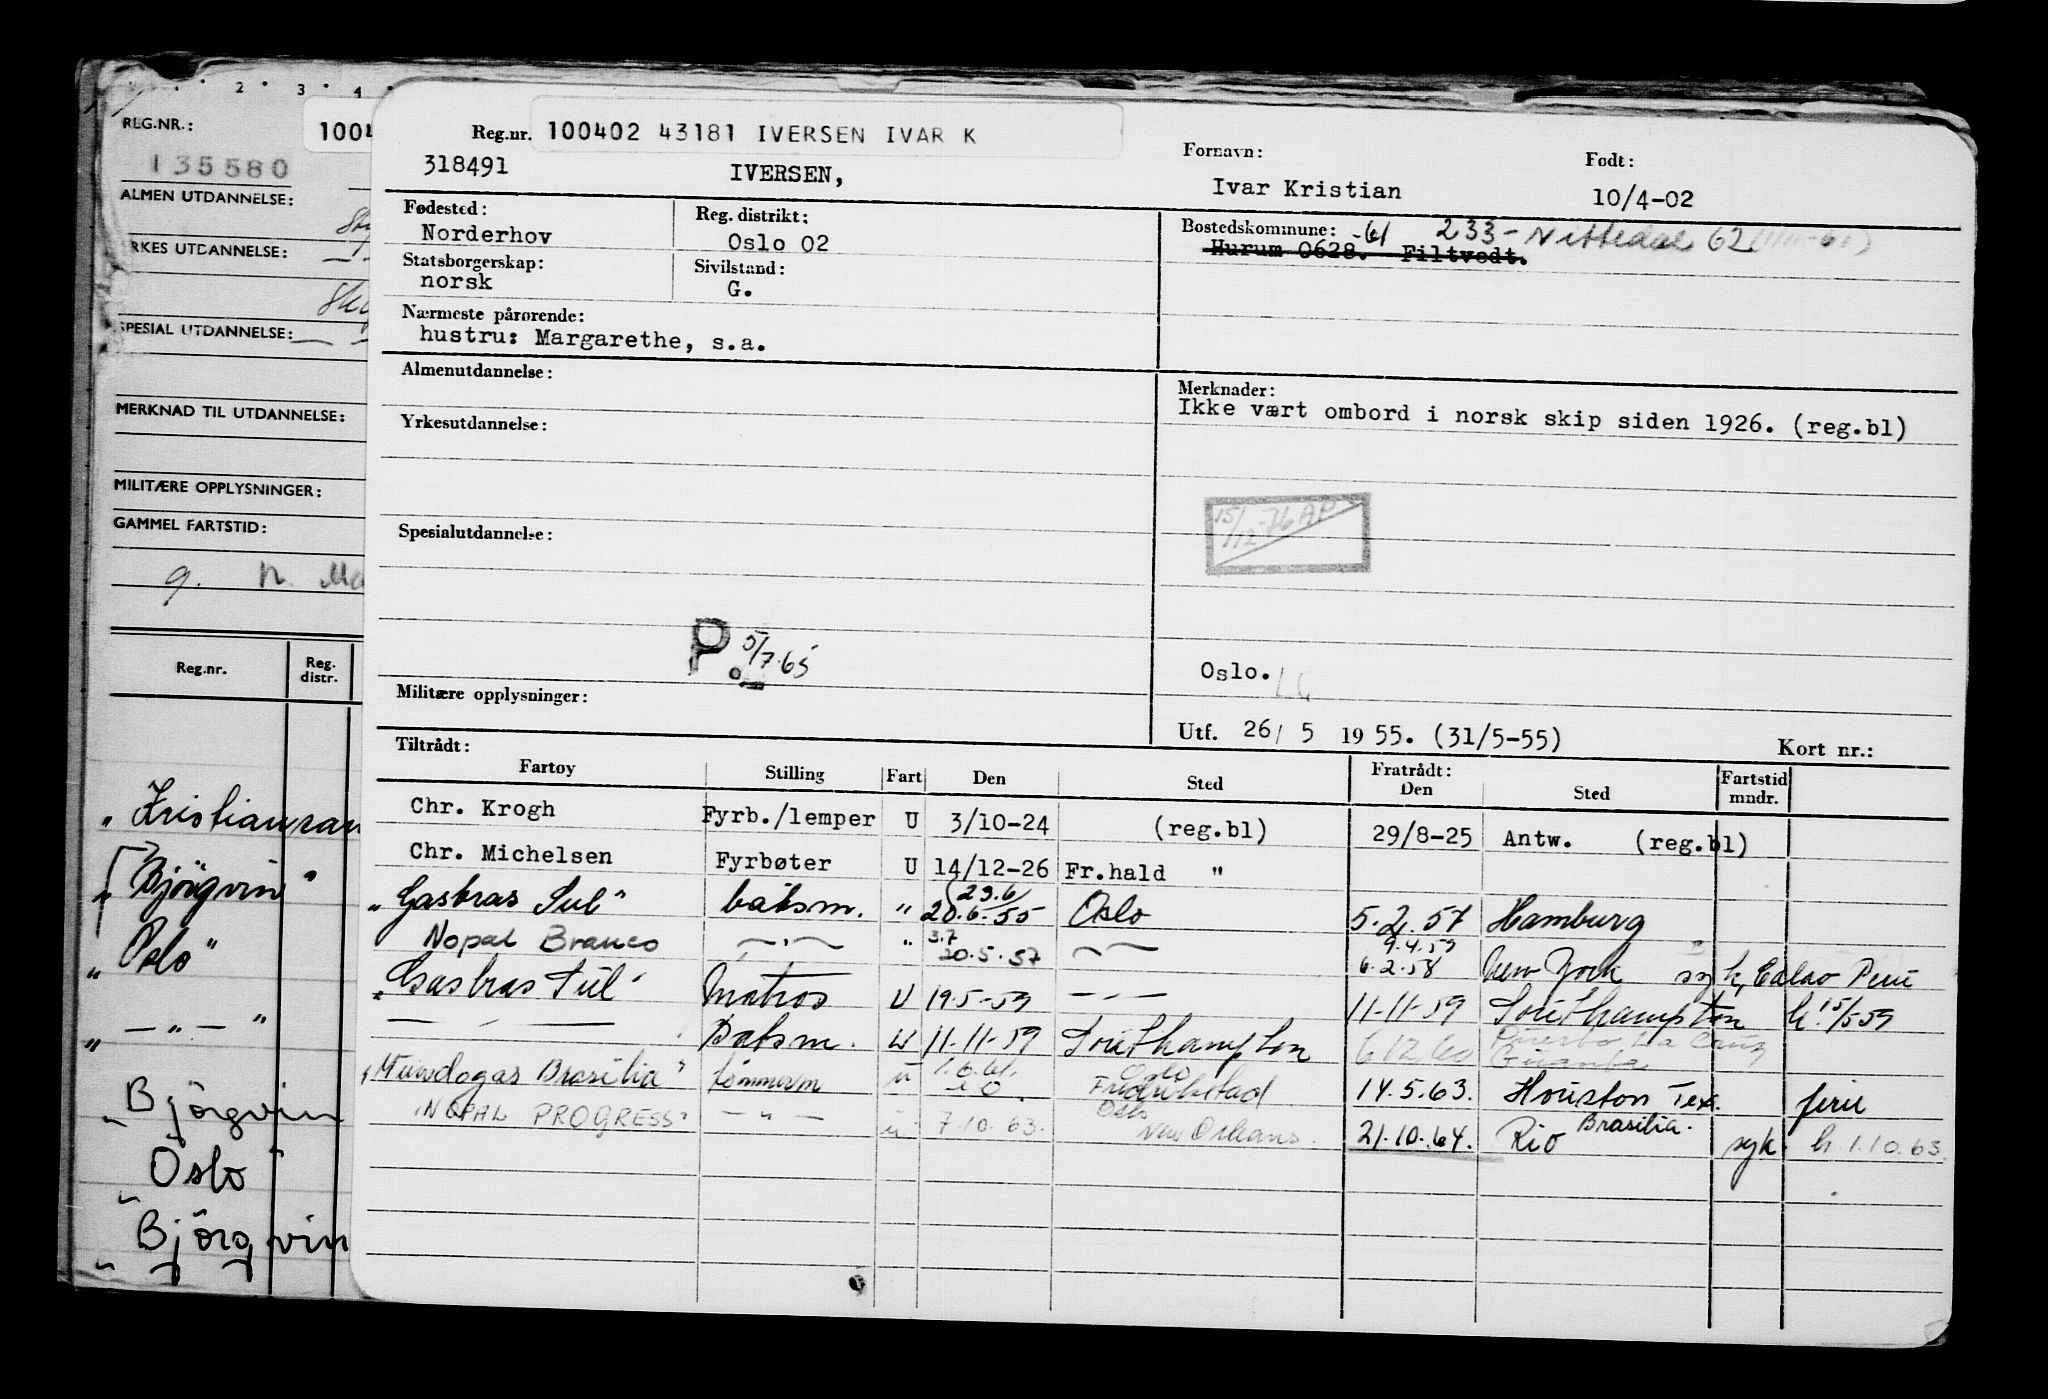 2 3 4
REG.NR.:
135580
ALMEN UTDANNELSE:
YRKES UTDANNELSE:
SPESIAL UTDANNELSE:
MERKNAD TIL UTDANNELSE:
MILITÆRE OPPLYSNINGER:
GAMMEL FARTSTID:
Reg.nr. Reg. distr.
"Bjørgvin"
"Oslo"
" — " — "
"Bjørgvin
Oslo"
"Bjørgvin
Reg.nr. 100402 43181 IVERSEN IVAR K
318491 IVERSEN,
Fornavn: Født:
Ivar Kristian 10/4-02
Fødested: Reg. distrikt: Bostedskommune: -61 233- Nittedal 62
Norderhov Oslo 02 Hurum 0628. Filtvedt.
Statsborgerskap: Sivilstand:
norsk G.
Nærmeste pårørende:
hustru: Margarethe, s.a.
Almenutdannelse: Merknader:
Ikke vært ombord i norsk skip siden 1926. (reg.bl)
Yrkesutdannelse:
15/12-76 AP
Spesialutdannelse:
P. 5/7.65
Oslo.
Militære opplysninger:
Utf. 26/ 5 1955. (31/5-55) Kort nr.:
Tiltrådt: Fratrådt:
Fartøy Stilling Fart Den Sted Den Sted Fartstid mndr.
Chr. Krogh Fyrb./lemper U 3/10-24 (reg.bl) 29/8-25 Antw. (reg.bl)
Chr. Michelsen Fyrbøter U 14/12-26 Fr.hald "
23.6
"Gasbras Sul" båtsm. " 20.6.55 Oslo 5.2.57 Hamburg
3.7 9.4.59
Nopal Branco — " — " 20.5.57 — " — 6.2.58 New York syk, Calao Peru
"Gasbras Sul" Matros U 19.5-59 — " — 11-11-59 Southampton h. 15/5 59
— " — Båtsm. U 11-11-59 Southampton 6 12 60 Puerto La Cruz
1.6.61. Oslo
"Mundogas Brasilia" tømmerm u Fredrikstad 14.5.63. Houston Tex. ferie
Oslo
"NOPAL PROGRESS" — " — u 7.10.63. New Orleans. 21.10.64. Rio Brasilia. syk. h. 1.10.63.